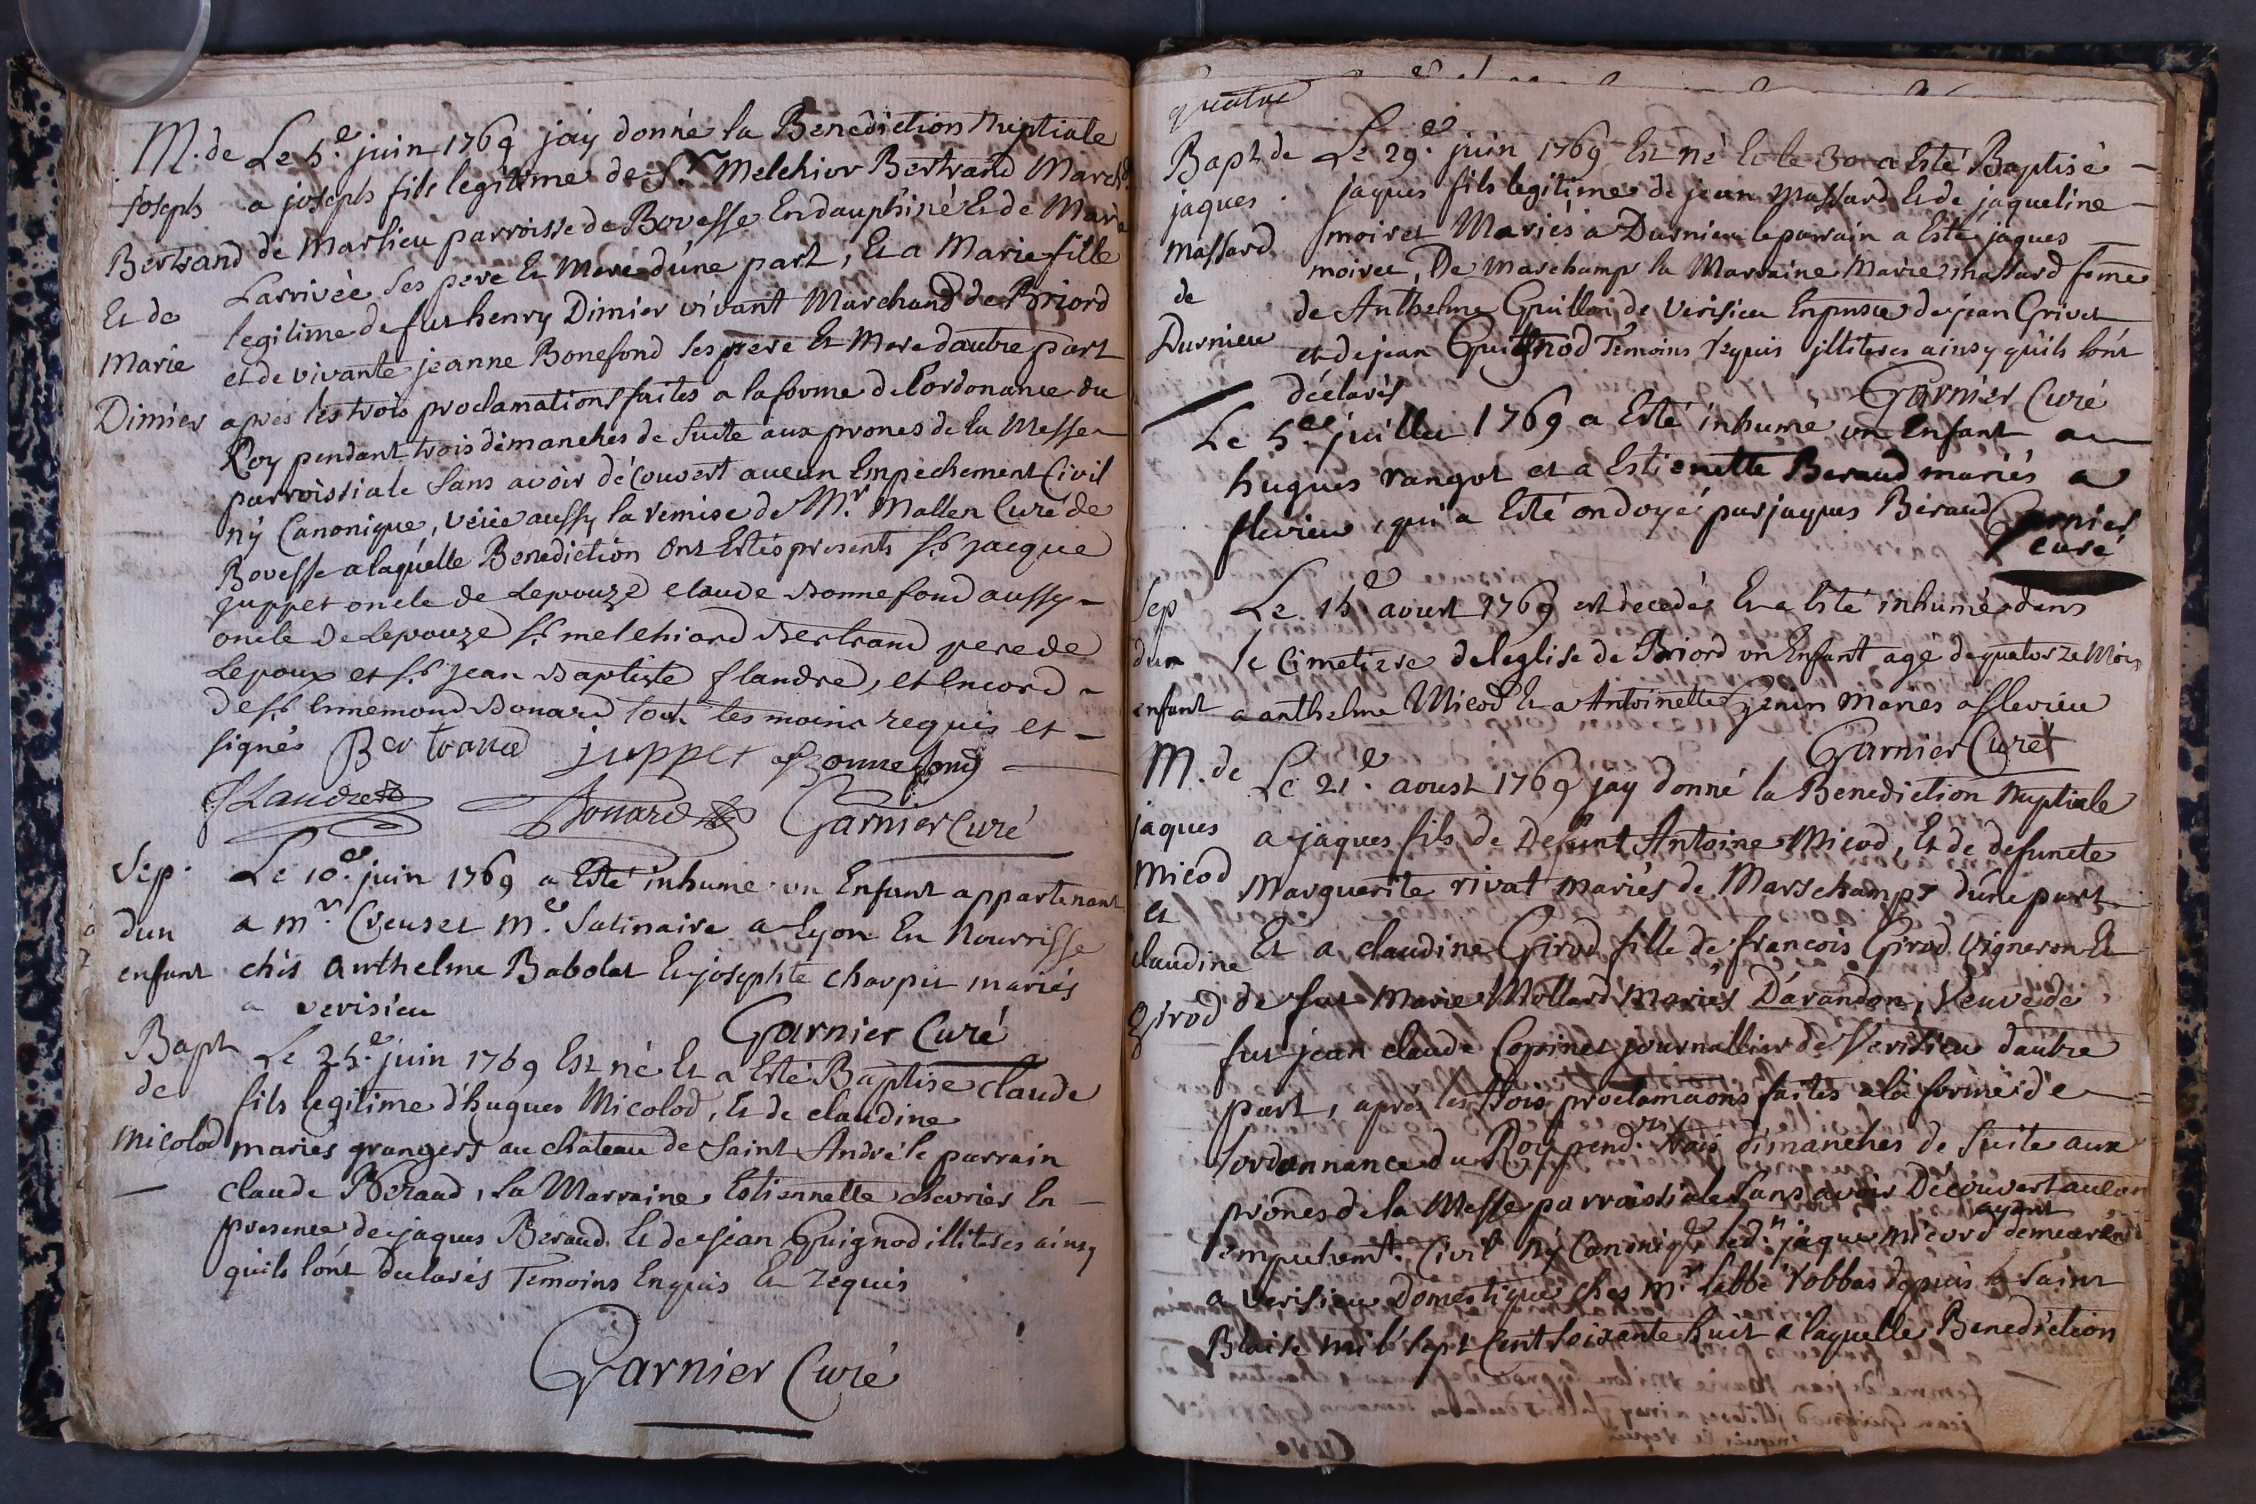 M. de
Joseph
Bertrand
Et de
Marie
Dimier
Le 5.e juin 1769 jay donné la Benediction Nuptiale
a joseph fils legitime de Sr. Melchior Bertrand March.d
de Marlieu parroisse de Bovesse En dauphiné Et de Marie
Larrivée ses pere Et Mere d'une part, Et a Marie fille
legitime de fut henry Dimier vivant Marchand de Briord
et de vivante jeanne Bonefond ses pere Et Mere dautre part
après les trois proclamations faites a la forme de l'ordonance du
Roy pendant trois dimanches de suite aux prones de la Messe
parroissiale sans avoir découvert aucun Empechement Civil
ny Canonique, veüe aussy la remise de Mr. Mallen Curé de
Bovesse a laquelle Benediction Ont Estés presents Sr. jacque
juppet oncle de Lepouze claude Bonnefond aussy
oncle de Lepouze Sr. melchiard Bertrand pere de
Lepoux et Sr. jean Baptiste flandre, et encord
de Sr. Ennemond Bouard tous tesmoins requis et
signés Bertrand juppet Bonnefond
flandre Bouard Garnier Curé
Sep.
dun
enfant
Le 10.e juin 1769 a Esté inhumé un Enfant appartenant
a Mr. Creuset Me. Satinaire a Lyon En Nourrisse
chés anthelme Babolat Et josephte charpit mariés
a verisieu
Garnier Curé
Bapt
de
Micolod
Le 25.e juin 1769 Est né Et a Esté Baptisé claude
fils legitime d'hugues Micolod, Et de claudine
mariés grangers au château de Saint André le parrain
claude Beraud, la Marraine Estiennette chevrier En
presence de jaques Beraud Et de jean Guignod illiteres ainsy
quils l'ont declarés Temoins Enquis Et requis
Garnier Curé
quatre
Bapt de
jaques
Massard
de
Durnieu
Le 29.e juin 1769 Est né Et le 30 a Esté Baptisé
jaques fils legitime de jean Massard Et de jaqueline
moiret Mariés a Durnieu le parrain a Esté jaques
moiret, De Marschamps la Marraine Marie Massard feme
de Anthelme Guilloi de Verisieu En pnsce de jean Grivet
et de jean Guignod Témoins réquis jlliteres ainsy quils lont
déclarés
Garnier Curé
Le 5.e juillet 1769 a Esté inhumé un Enfant a
hugues rangot et a Estienette Beraud mariés a
flevieu, qui a Esté ondoyé par jaques Beraud Garnier
curé
Sep
dun
enfant
Le 15.e aoust 1769 est decedés Et a Esté inhumé dans
le Cimetiere de leglise de Briord un Enfant agé de quatorze Mois
a anthelme Micod Et a Antoinette Jenin Mariés a flevieu
Garnier Curé
M. de
jaques
Micod
Et
claudine
Girod
Le 21.e aoust 1769 jay donné la Benediction Nuptiale
a jaques fils de Defunt Antoine Micod, Et de defuncte
Marguerite rivat mariés de Marschamps dune part
Et a claudine Girod fille de françois Girod vigneron Et
de fut Marie Mollard Mariés D'arandon, Veuve de
fut jean claude Copinet journallier de Verisieu dautre
part, après les trois proclamaons faites a la forme de
lordonnance du Roy pend.t trois dimanches de suite aux
prônes de la Messe parroissiale sans avoir Découvert aucun
empechemt. Civil Ny Canoniqe led.t jaque micord ayant demeuré
a verisieu domestique chés Mr. labbé robbas depuis la Saint
Blaise mil sept Cent soixante huit a laquelle Benediction